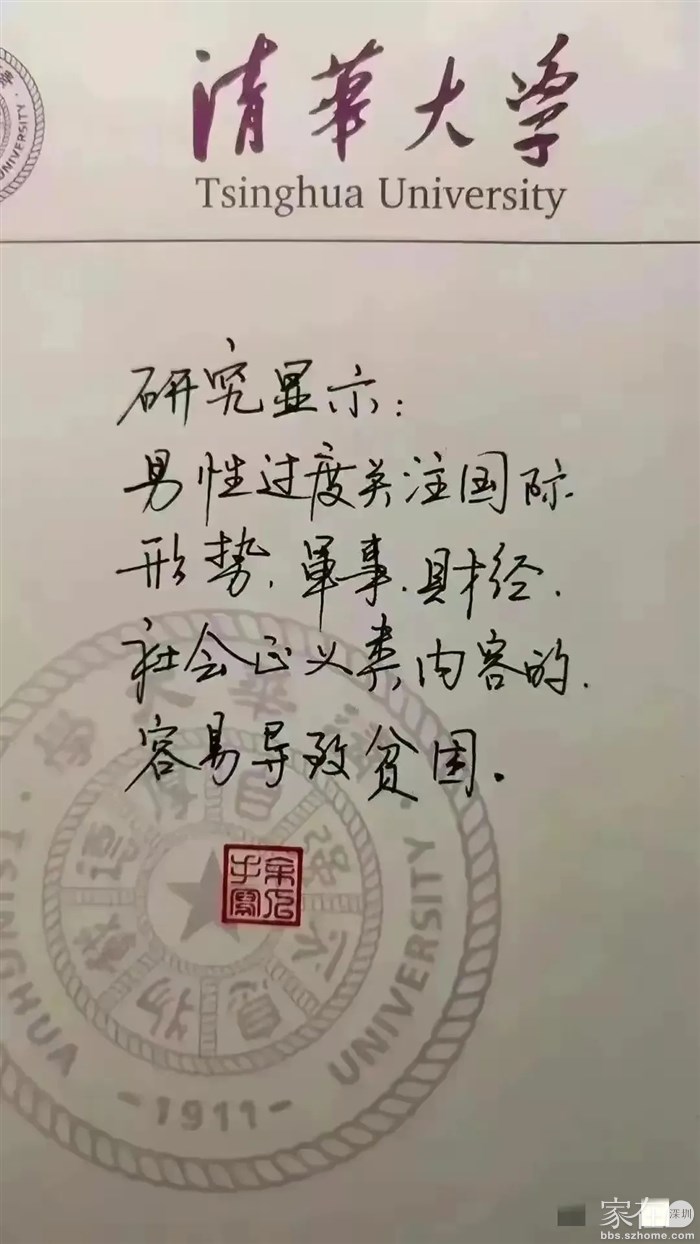 清華大学
Tsinghua University
UNIVERSITY
研究显示:
男性过度关注国际
形势、軍事、财经、
社会正义类内容的、
容易导致贫困。
TSINGHUA UNIVERSITY
-1911-
家在
深圳
bbs.szhome.com